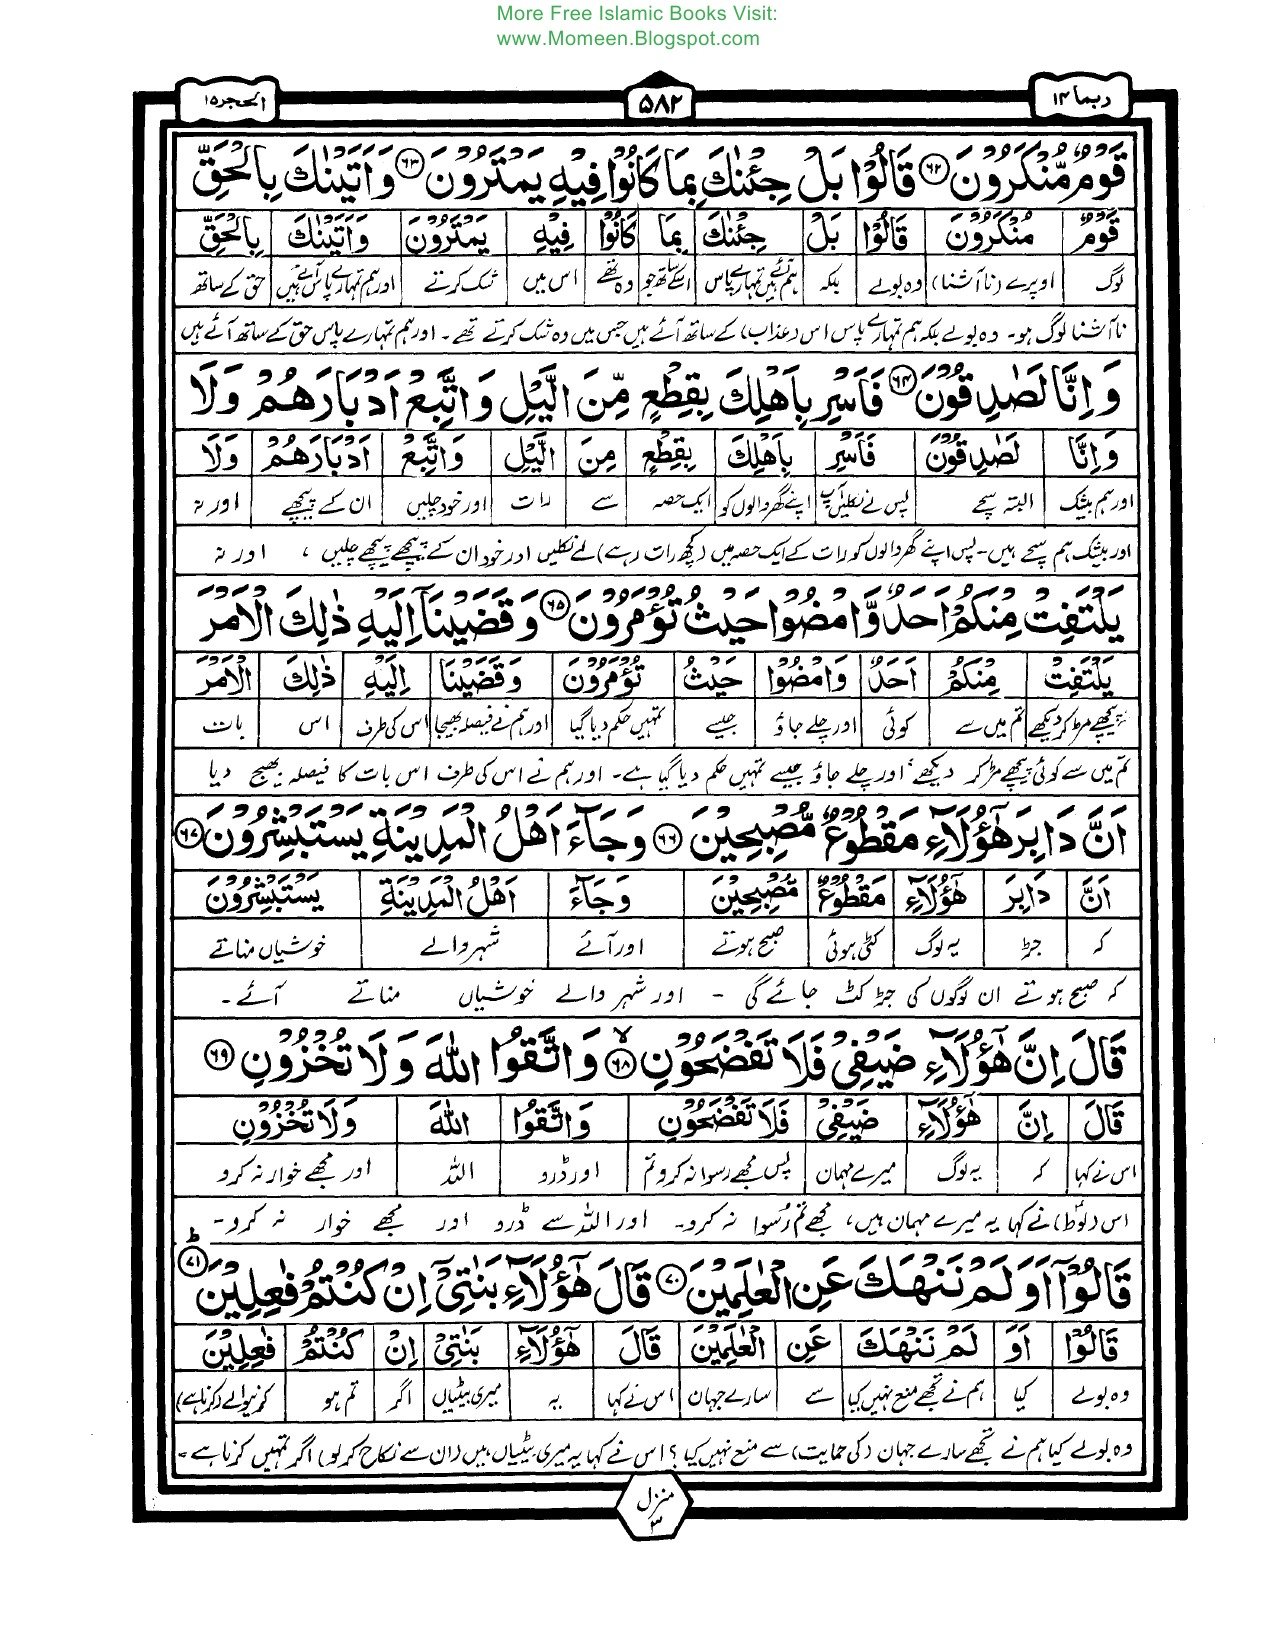 More Free Islamic Books Visit:
www.Momeen.Blogspot.com
ربما ۱۴
۵۸۲
الحجر ۱۵
قَوْمٌ مُّنْكَرُوْنَ ۶۲ قَالُوْا بَلْ جِئْنٰكَ بِمَا كَانُوْا فِیْهِ یَمْتَرُوْنَ ۶۳ وَاَتَیْنٰكَ بِالْحَقِّ
قَوْمٌ مُّنْكَرُوْنَ قَالُوْا بَلْ جِئْنٰكَ بِمَا كَانُوْا فِیْهِ یَمْتَرُوْنَ وَاَتَیْنٰكَ بِالْحَقِّ
لوگ اوپرے (ناآشنا) وہ بولے بلکہ ہم آئے ہیں تمہارے پاس اسکے ساتھ جو وہ تھے اس میں شک کرتے اور ہم تمہارے پاس آئے ہیں حق کے ساتھ
ناآشنا لوگ ہو۔ وہ بولے بلکہ ہم تمہارے پاس اس (عذاب) کے ساتھ آئے ہیں جس میں وہ شک کرتے تھے۔ اور ہم تمہارے پاس حق کے ساتھ آئے ہیں
وَ اِنَّا لَصٰدِقُوْنَ ۶۴ فَاَسْرِ بِاَهْلِكَ بِقِطْعٍ مِّنَ الَّیْلِ وَاتَّبِعْ اَدْبَارَهُمْ وَلَا
وَاِنَّا لَصٰدِقُوْنَ فَاَسْرِ بِاَهْلِكَ بِقِطْعٍ مِنَ الَّیْلِ وَاتَّبِعْ اَدْبَارَهُمْ وَلَا
اور ہم بیشک البتہ سچے پس لے نکلیں آپ اپنے گھر والوں کو ایک حصہ سے رات اور خود چلیں ان کے پیچھے اور نہ
اور بیشک ہم سچے ہیں۔ پس اپنے گھر والوں کو رات کے ایک حصہ میں (کچھ رات رہے) لے نکلیں اور خود ان کے پیچھے پیچھے چلیں، اور نہ
یَلْتَفِتْ مِنْكُمْ اَحَدٌ وَّامْضُوْا حَیْثُ تُؤْمَرُوْنَ ۶۵ وَقَضَیْنَاۤ اِلَیْهِ ذٰلِكَ الْاَمْرَ
یَلْتَفِتْ مِنْكُمْ اَحَدٌ وَامْضُوْا حَیْثُ تُؤْمَرُوْنَ وَقَضَیْنَا اِلَیْهِ ذٰلِكَ الْاَمْرَ
پیچھے مڑ کر دیکھے تم میں سے کوئی اور چلے جاؤ جیسے تمہیں حکم دیا گیا اور ہم نے فیصلہ بھیجا اس کی طرف اس بات
تم میں سے کوئی پیچھے مڑ کر دیکھے، اور چلے جاؤ جیسے تمہیں حکم دیا گیا ہے۔ اور ہم نے اس کی طرف اس بات کا فیصلہ بھیج دیا
اَنَّ دَابِرَ هٰۤؤُلَآءِ مَقْطُوْعٌ مُّصْبِحِیْنَ ۶۶ وَجَآءَ اَهْلُ الْمَدِیْنَةِ یَسْتَبْشِرُوْنَ ۶۷
اَنَّ دَابِرَ هٰۤؤُلَآءِ مَقْطُوْعٌ مُّصْبِحِیْنَ وَجَآءَ اَهْلُ الْمَدِیْنَةِ یَسْتَبْشِرُوْنَ
کہ جڑ یہ لوگ کٹی ہوئی صبح ہوتے اور آئے شہر والے خوشیاں مناتے
کہ صبح ہوتے ان لوگوں کی جڑ کٹ جائے گی ۔ اور شہر والے خوشیاں مناتے آئے۔
قَالَ اِنَّ هٰۤؤُلَآءِ ضَیْفِیْ فَلَا تَفْضَحُوْنِ ۶۸ لا وَاتَّقُوا اللّٰهَ وَلَا تُخْزُوْنِ ۶۹
قَالَ اِنَّ هٰۤؤُلَآءِ ضَیْفِیْ فَلَا تَفْضَحُوْنِ وَاتَّقُوا اللّٰهَ وَلَا تُخْزُوْنِ
اس نے کہا کہ یہ لوگ میرے مہمان پس مجھے رسوا نہ کرو تم اور ڈرو اللہ اور مجھے خوار نہ کرو
اس (لوطؑ) نے کہا یہ میرے مہمان ہیں، مجھے تم رُسوا نہ کرو۔ اور اللہ سے ڈرو اور مجھے خوار نہ کرو۔
قَالُوْۤا اَوَلَمْ نَنْهَكَ عَنِ الْعٰلَمِیْنَ ۷۰ قَالَ هٰۤؤُلَآءِ بَنٰتِیْۤ اِنْ كُنْتُمْ فٰعِلِیْنَ ۷۱ ط
قَالُوْۤا اَوَ لَمْ نَنْهَكَ عَنِ الْعٰلَمِیْنَ قَالَ هٰۤؤُلَآءِ بَنٰتِیْۤ اِنْ كُنْتُمْ فٰعِلِیْنَ
وہ بولے کیا ہم نے تجھے منع نہیں کیا سے سارے جہان اس نے کہا یہ میری بیٹیاں اگر تم ہو کرنیوالے (کرنا ہے)
وہ بولے کیا ہم نے تجھے سارے جہان (کی حمایت) سے منع نہیں کیا؟ اس نے کہا یہ میری بیٹیاں ہیں (ان سے نکاح کر لو) اگر تمہیں کرنا ہے۔
منزل ۳